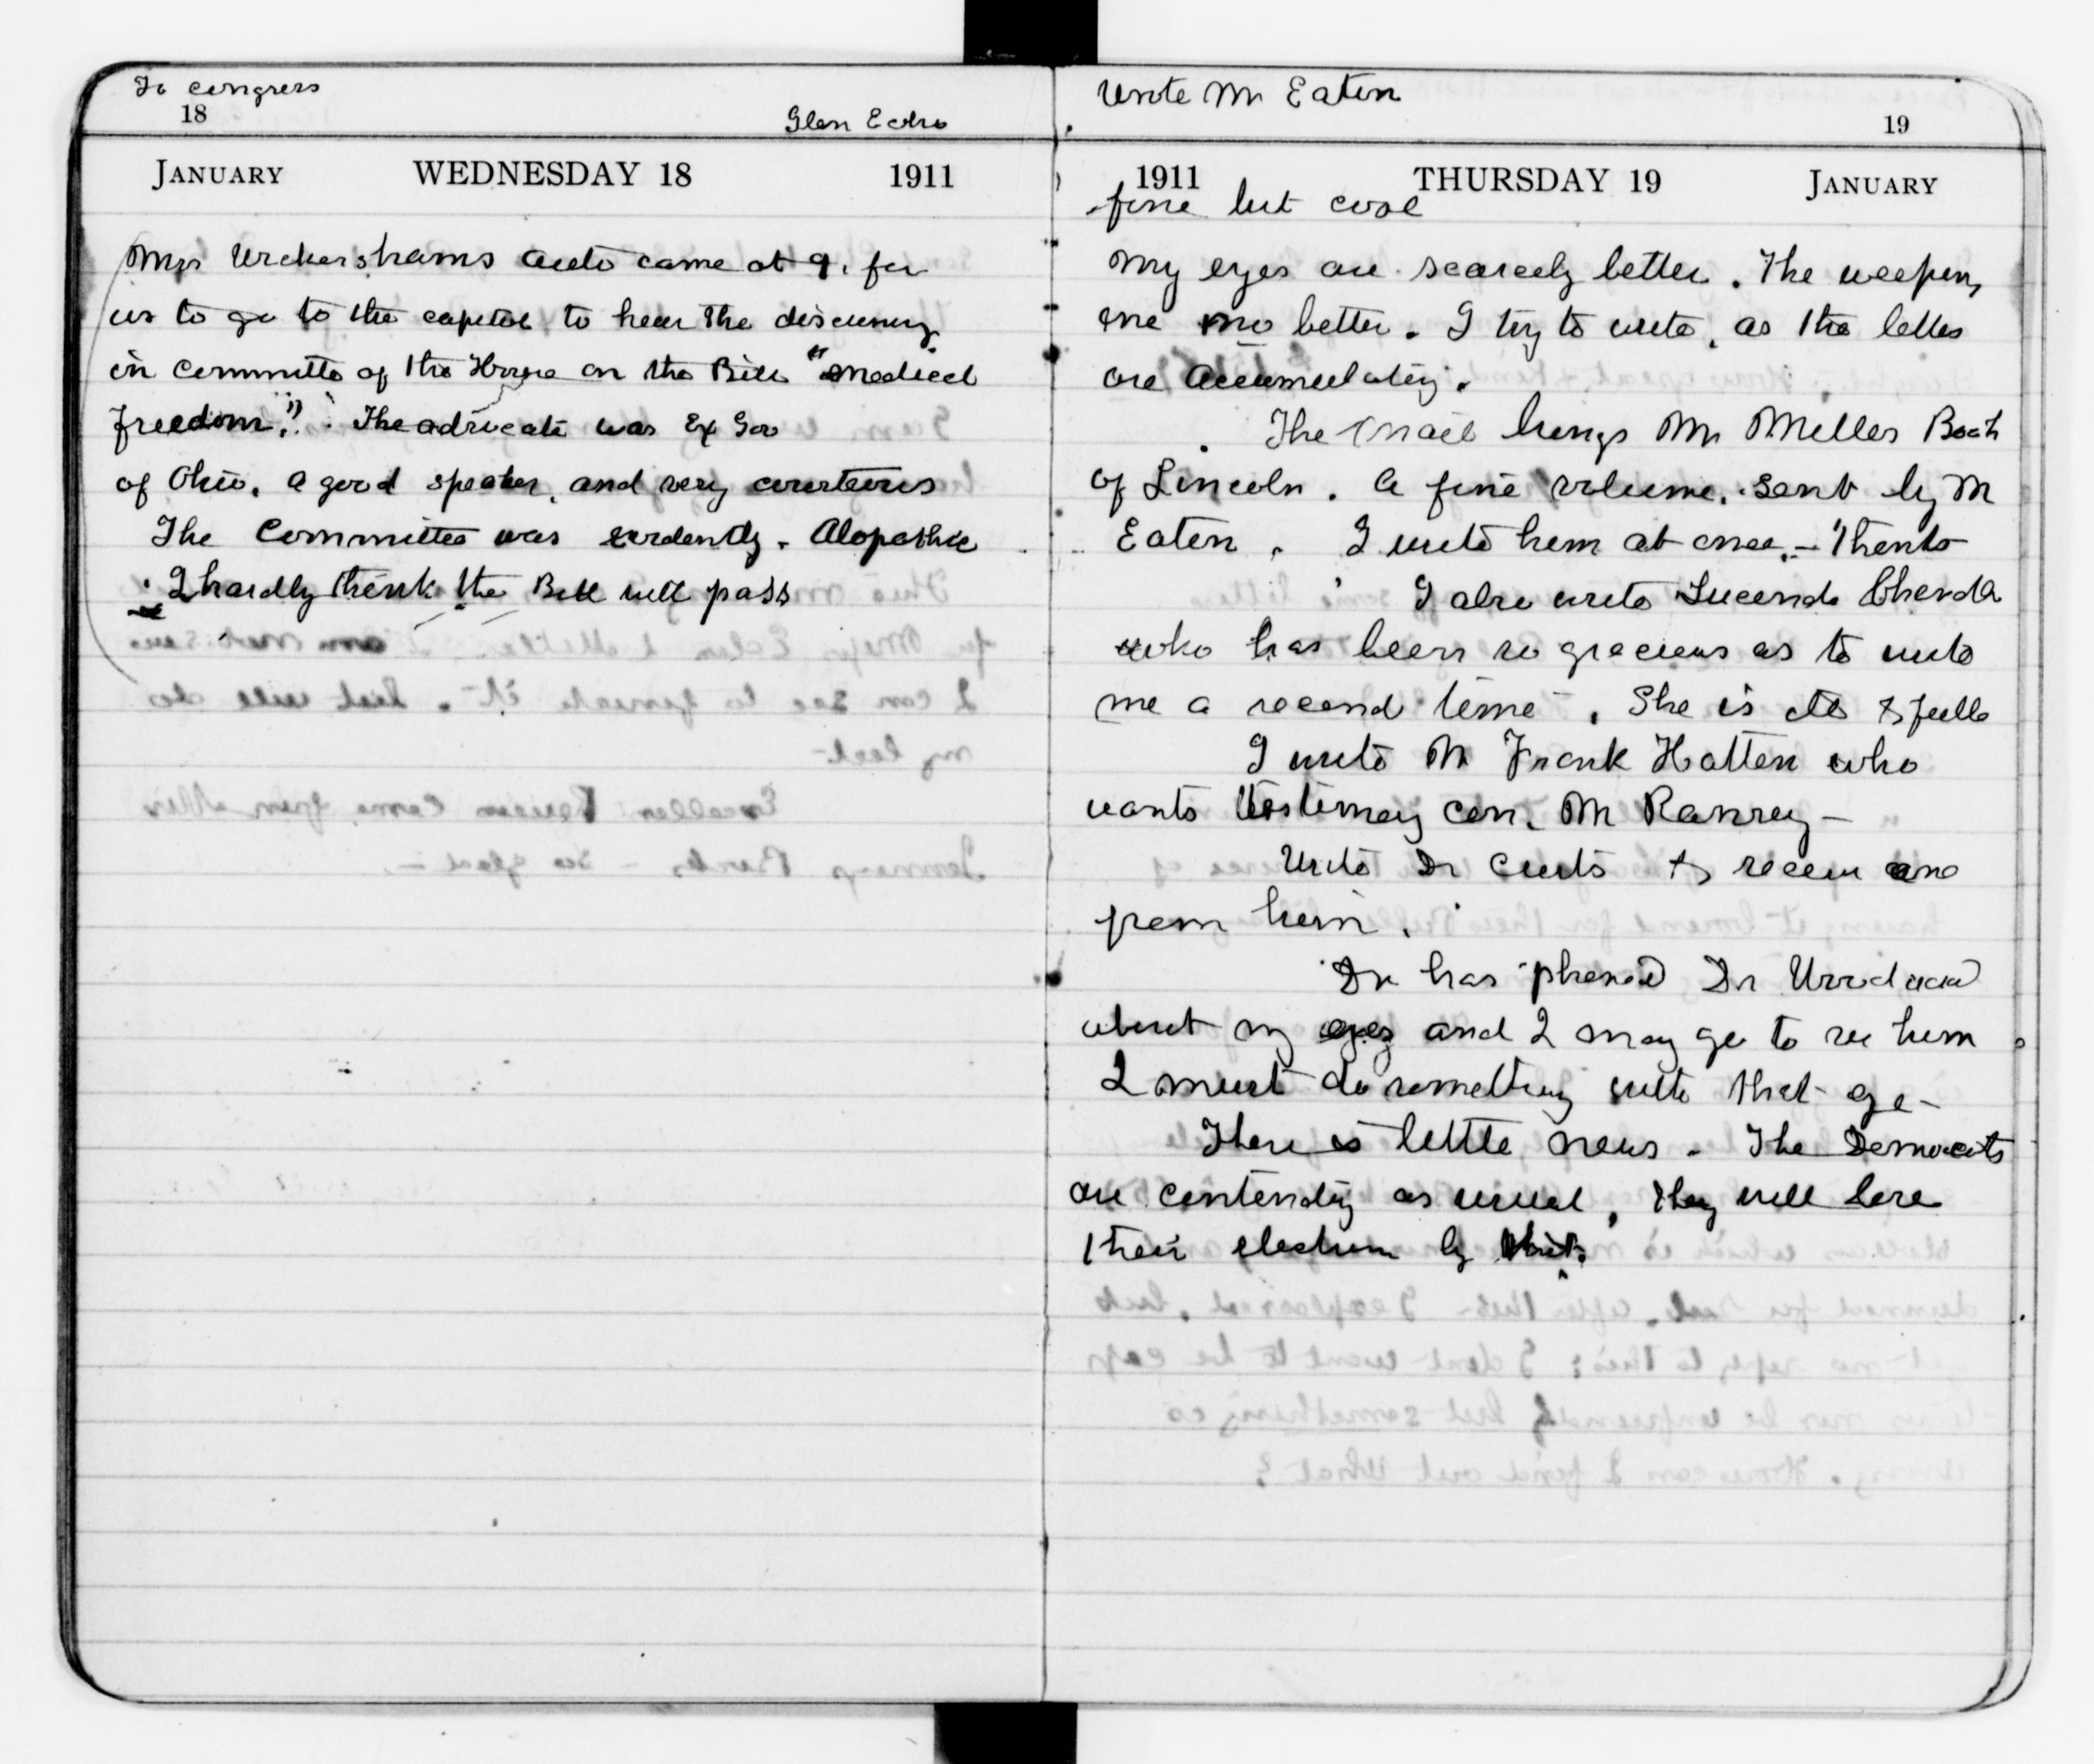 To congress
18
Glen Echo
JANUARY WEDNESDAY 18 1911
Mrs Wickershams auto came at 9. for
us to go to the capitol to hear the discussing
in Committe of the House on the Bill "Medical
freedom." The advocate was Ex Gov
of Ohio. a good speaker, and very courteous
The Committee was evidently. Alopathic
I hardly think the Bill will pass
Wrote Mr Eaton
19
1911 THURSDAY 19 JANUARY
fine but cool
My eyes are scarcely better. The weeping
one no better. I try to write, as the letters
are accumulating.
The mail brings Mr Millers Book
of Lincoln. a fine volume. sent by Mr
Eaton. I write him at once. - Thanks
I also write Lucinda
who has been so gracious as to write
me a second time. She is
I write Mr Frank Hatten who
wants testimony con. Mr Ramsey -
Write Dr Curtis & receive one
from him.
Dr has phoned Dr Woodward
about my eyes and I may go to see him
I must do something with that eye -
There is little news. The Democrats
are contending as usual, they will lose
their election by this.